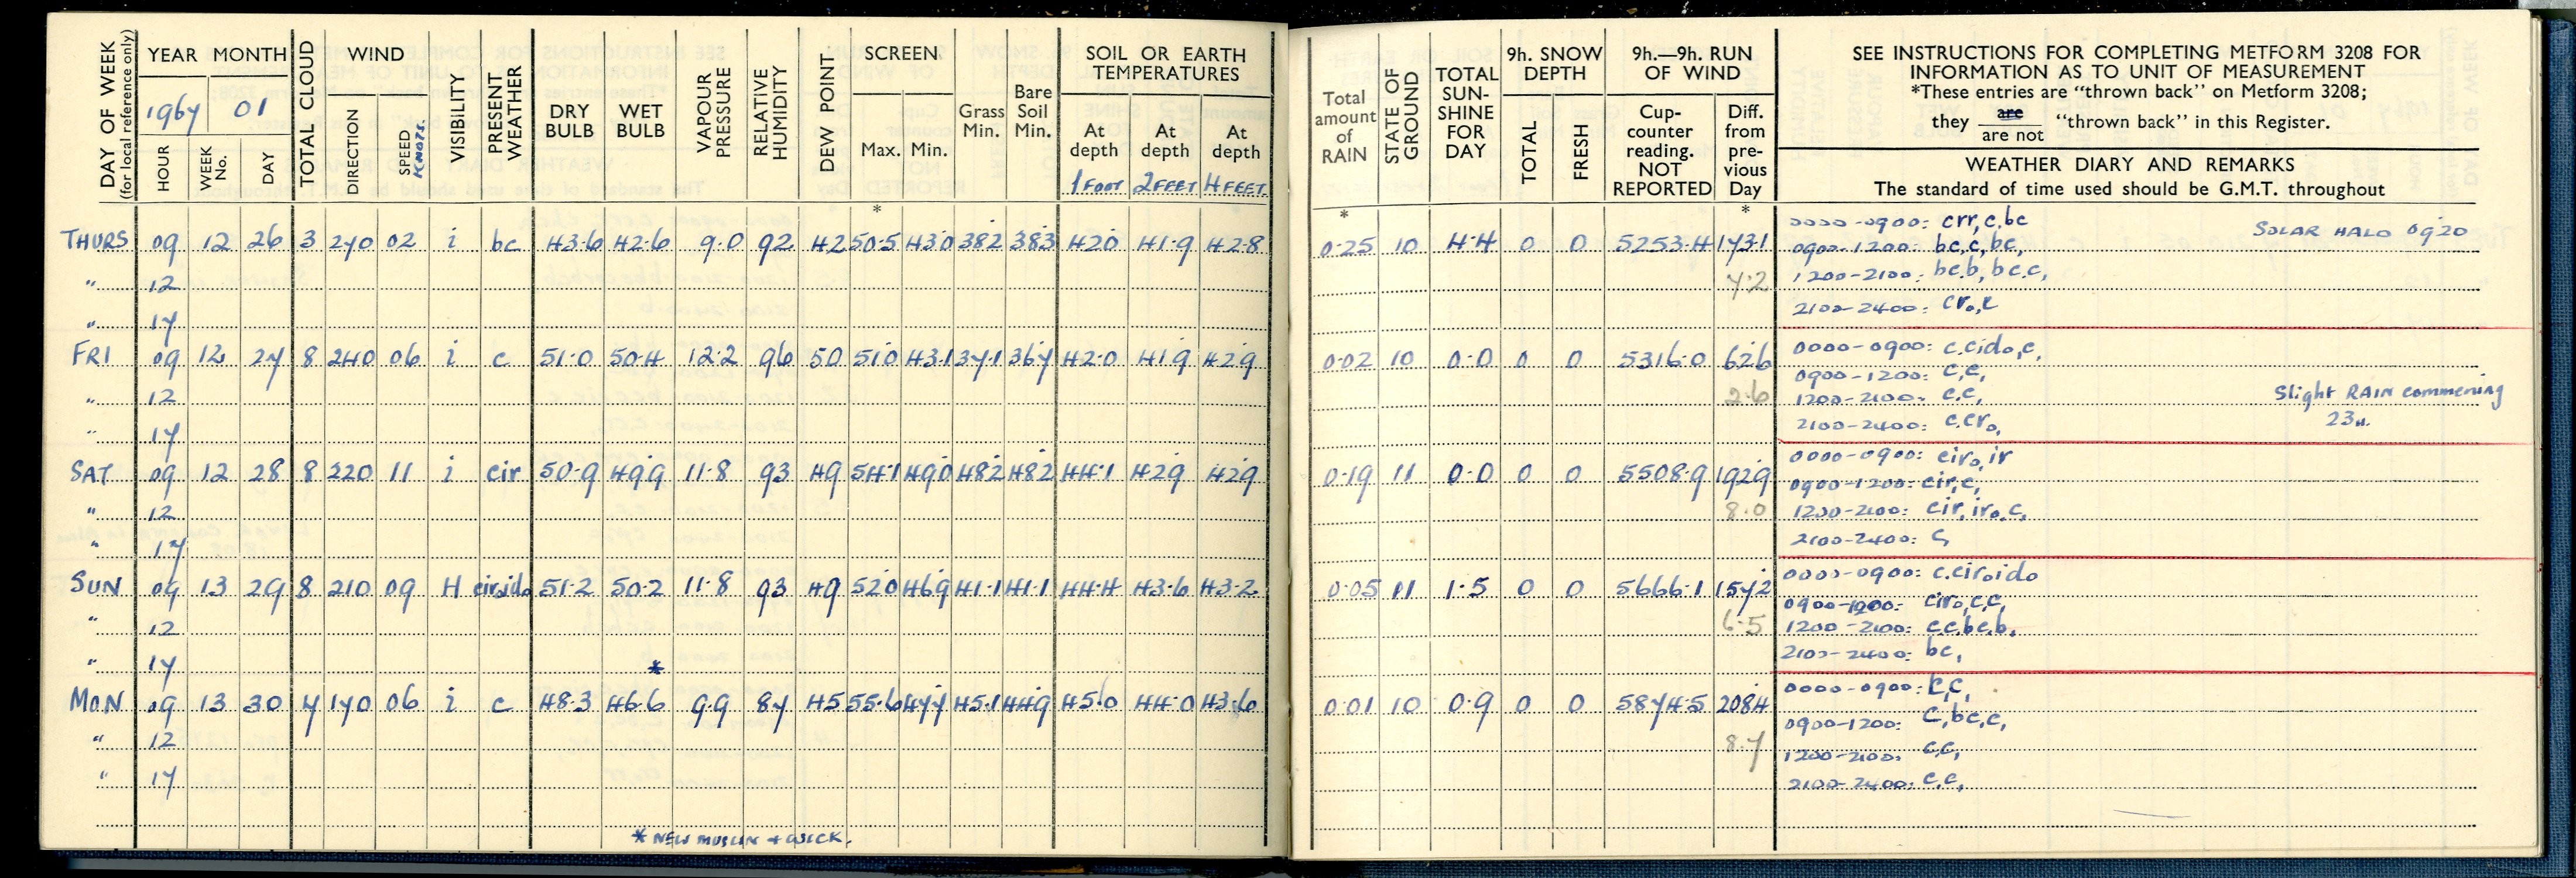 DAY OF WEEK (for local reference only)
YEAR MONTH
1967 01
HOUR WEEK No. DAY
TOTAL CLOUD
WIND
DIRECTION SPEED KNOTS.
VISIBILITY
PRESENT WEATHER
DRY BULB
WET BULB
VAPOUR PRESSURE
RELATIVE HUMIDITY
DEW POINT
SCREEN
Max. Min.
Grass Min.
Bare Soil Min.
SOIL OR EARTH TEMPERATURES
At depth At depth At depth
1 FOOT 2 FEET 4 FEET
Total amount of RAIN
STATE OF GROUND
TOTAL SUN-SHINE FOR DAY
9h. SNOW DEPTH
TOTAL FRESH
9h.—9h. RUN OF WIND
Cup-counter reading. NOT REPORTED
Diff. from pre-vious Day
SEE INSTRUCTIONS FOR COMPLETING METFORM 3208 FOR
INFORMATION AS TO UNIT OF MEASUREMENT
*These entries are "thrown back" on Metform 3208;
they are / are not "thrown back" in this Register.
WEATHER DIARY AND REMARKS
The standard of time used should be G.M.T. throughout
* * *
THURS 09 12 26 3 270 02 i bc 43.6 42.6 9.0 92 42 50.5 43.0 38.2 38.3 42.0 41.9 42.8 0.25 10 4.4 0 0 5253.4 173.1
0000-0900: crr,c.bc
SOLAR HALO 0920
0900-1200: bc,c,bc,
" 12 7.2
1200-2100: bc.b, bc.c,
" 17
2100-2400: cr₀,c
FRI 09 12 27 8 240 06 i c 51.0 50.4 12.2 96 50 51.0 43.1 37.1 36.7 42.0 41.9 42.9 0.02 10 0.0 0 0 5316.0 62.6
0000-0900: c.cid₀,c,
0900-1200: c,c,
" 12 2.6
1200-2100: c.c,
Slight RAIN commencing
23H.
" 17
2100-2400: c.cr₀,
SAT 09 12 28 8 220 11 i cir 50.9 49.9 11.8 93 49 54.1 49.0 48.2 48.2 44.1 42.9 42.9 0.19 11 0.0 0 0 5508.9 192.9
0000-0900: cir₀,ir
0900-1200: cir,c,
" 12 8.0
1200-2100: cir, ir₀,c,
" 17
2100-2400: c,
SUN 09 13 29 8 210 09 H cir₀id₀ 51.2 50.2 11.8 93 49 52.0 46.9 41.1 41.1 44.4 43.6 43.2 0.05 11 1.5 0 0 5666.1 157.2
0000-0900: c.cir₀id₀
0900-1200: cir₀,c,c,
" 12 6.5
1200-2100: c.c.bc.b,
" 17 *
2100-2400: bc,
MON 09 13 30 7 170 06 i c 48.3 46.6 9.9 87 45 55.6 47.7 45.1 44.9 45.0 44.0 43.6 0.01 10 0.9 0 0 5874.5 208.4
0000-0900: c,c,
0900-1200: c,bc,c,
" 12 8.7
1200-2100: c,c,
" 17
2100-2400: c.c,
* NEW MUSLIN + WICK.